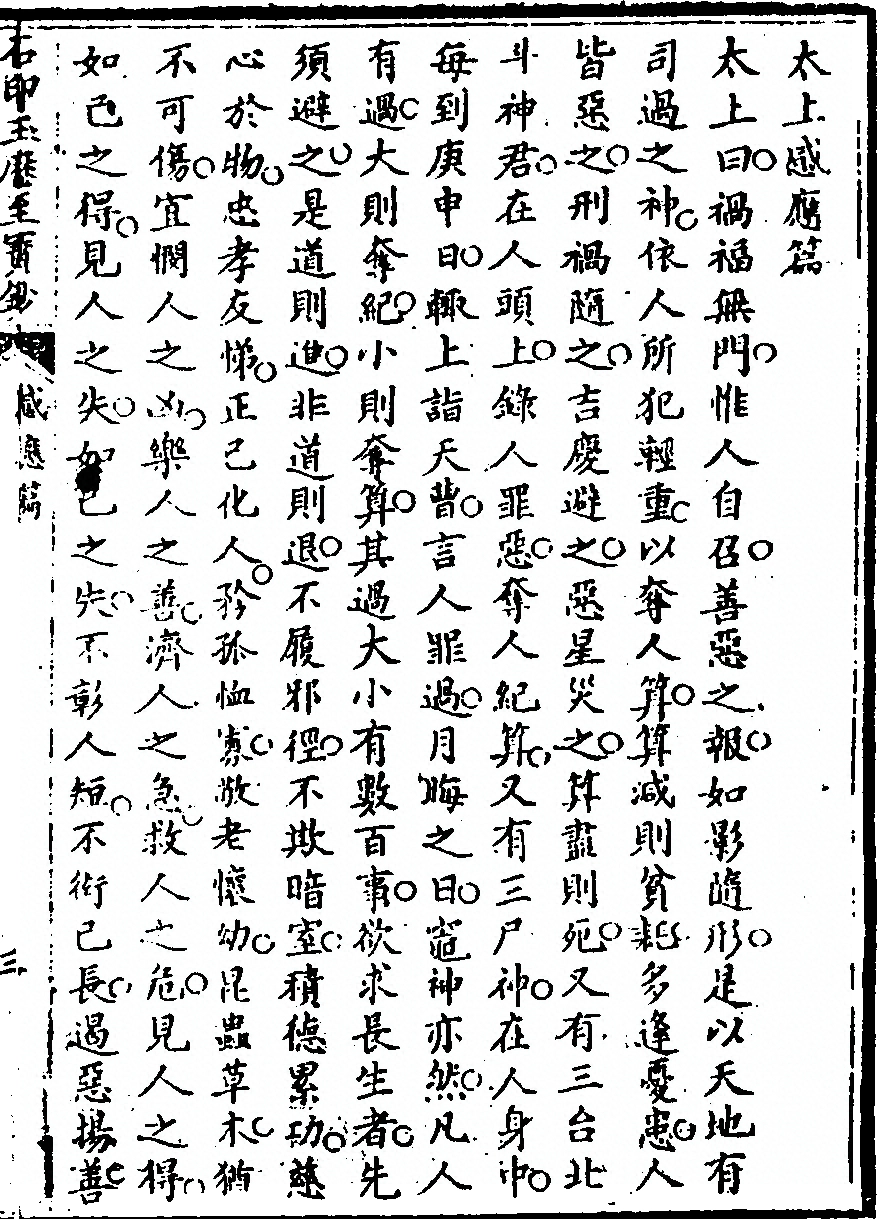 太上感應篇
太上曰○禍福無門○惟人自召○善惡之報○如影隨形○是以天地有
司過之神○依人所犯輕重○以奪人算○算減則貧耗○多逢憂患○人
皆惡之○刑禍隨之○吉慶避之○惡星災之○算盡則死○又有三台北
斗神君○在人頭上○錄人罪惡○奪人紀算○又有三尸神○在人身中○
每到庚申日○輒上詣天曹○言人罪過○月晦之日○竈神亦然○凡人
有過○大則奪紀○小則奪算○其過大小有數百事○欲求長生者○先
須避之○是道則進○非道則退○不履邪徑○不欺暗室○積德累功○慈
心於物○忠孝友悌○正己化人○矜孤恤寡○敬老懷幼○昆蟲草木○猶
不可傷○宜憫人之凶○樂人之善○濟人之急○救人之危○見人之得○
如己之得○見人之失○如己之失○不彰人短○不衒己長○遏惡揚善○
石印玉歷至寶鈔
感應篇
三